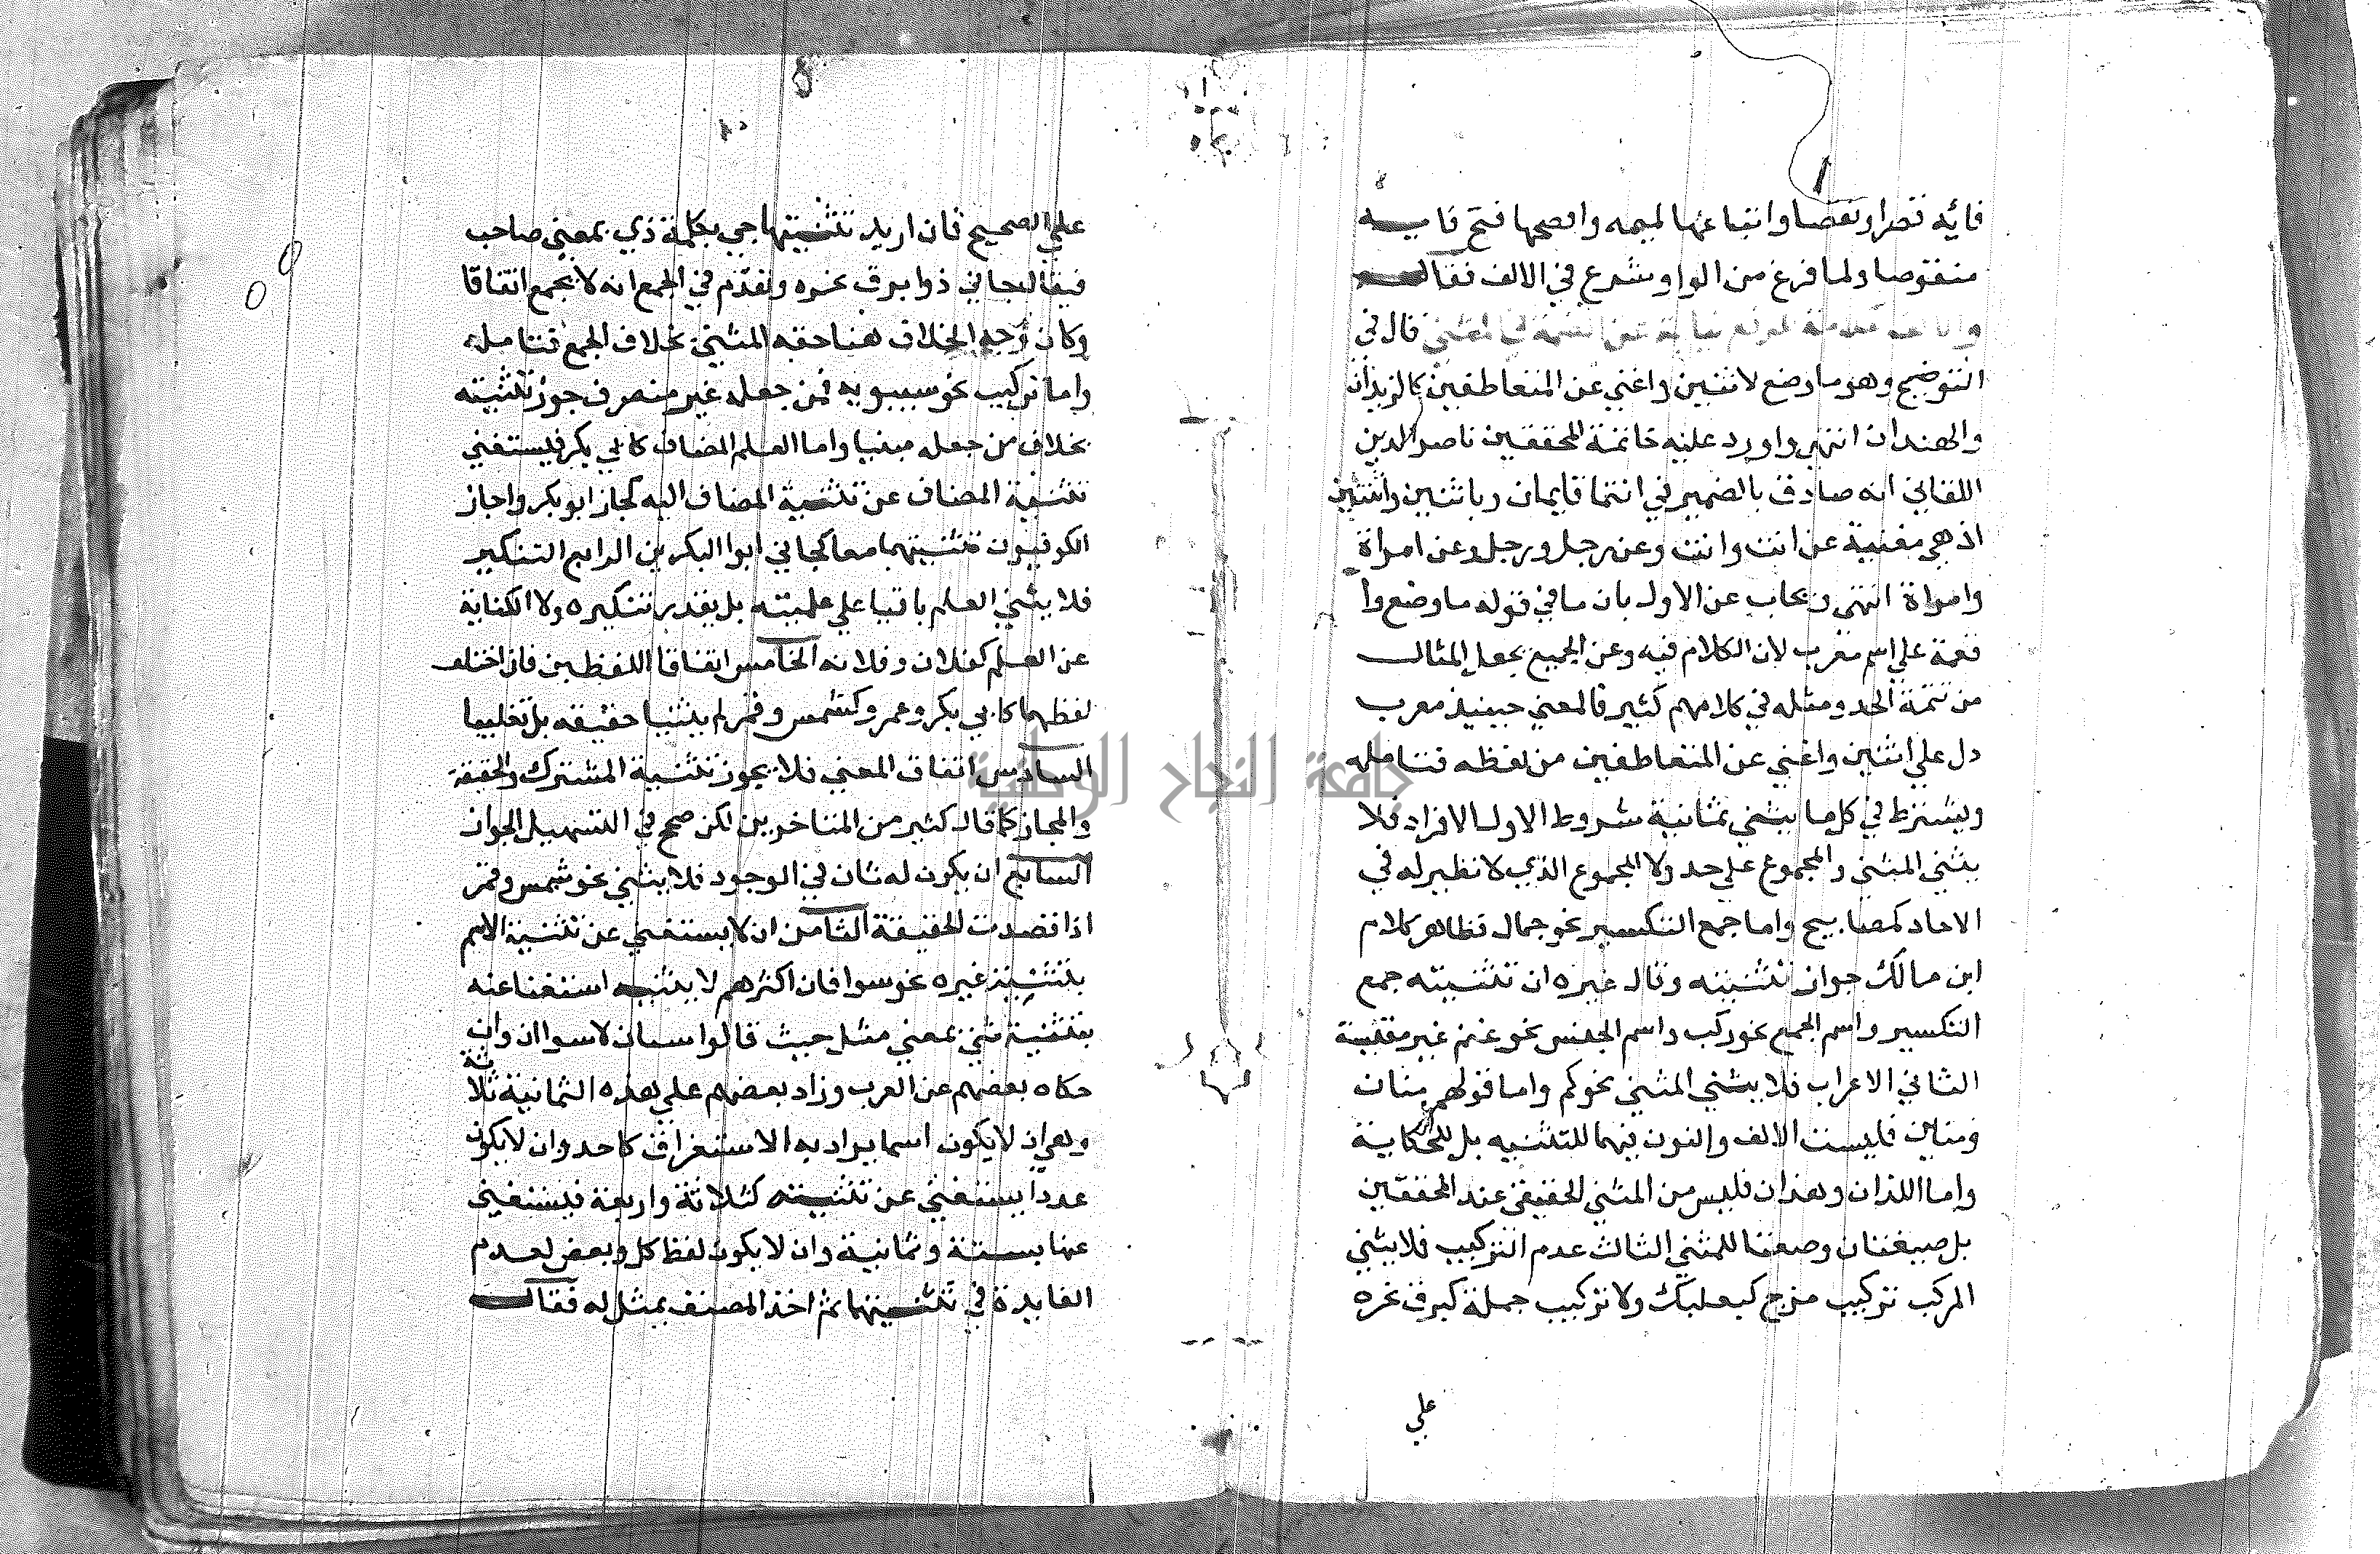 فائه قصرا ونقصا واتباعها لميمه وافصحها فتح فايه
منقوصا ولما فرغ من الواو شرع في الالف فقال
قال في
التوضيح وهو ما وضع لاثنين واغني عن المتعاطفين كالزيدان
والهندان انتهي واورد عليه خاتمة المحققين ناصر الدين
اللقاني انه صادق بالضمير في انتما قايمان وباثنين واثنتين
اذ هي مغنية عن انت وانت وعن رجل ورجل وعن امراة
وامراة انتهي ويجاب عن الاول بان ما في قوله ما وضع وا
قعة علي اسم معرب لان الكلام فيه وعن الجميع بجعل المثال
من تتمة الحد ومثله في كلامهم كثير فالمعني حينيذ معرب
دل علي اثنين واغني عن المتعاطفين من لفظه فتامله
ويشترط في كل ما يثني ثمانية شروط الاول الافراد فلا
يثني المثني والمجموع علي حد ولا المجموع الذي لا نظير له في
الاحاد كمصابيح واما جمع التكسير نحو جمال فظاهر كلام
ابن مالك جواز تثنيته وقال غيره ان تثنيته جمع
التكسير واسم الجمع نحو ركب واسم الجنس نحو غنم غير مقيسة
الثاني الاعراب فلا يثني المثني نحو كم واما قولهم منان
ومنين فليست الالف والنون فيهما للتثنيه بل للحكاية
واما اللذان وهذان فليس من المثني الحقيقي عند المحققين
بل صيغتان وضعتا للمثني الثالث عدم التركيب فلا يثني
المركب تركيب مزج كبعلبك ولا تركيب جملة كبرق نحره
علي
علي الصحيح فان اريد تثنيتها جي بكلمة ذي بمعني صاحب
فيقال جاني ذوا برق نحره وتقدم في الجمع انه لا يجمع اتفاقا
وكان وجه الخلاف هنا خفه المثني بخلاف الجمع فتامله
واما تركيب نحو سيبويه فمن جعله غير منصرف جوز تثنيته
بخلاف من جعله مبنيا واما العلم المضاف كابي بكر فيستغني
تثنية المضاف عن تثنية المضاف اليه كجاز ابو بكر واجاز
الكوفيون تثنيتهما معا كجاني ابوا البكرين الرابع التنكير
فلا يثني العلم باقيا علي علميته بل يقدر تنكيره ولا الكناية
عن العلم كفلان وفلانه الخامس اتفاقا اللفظين فان اختلف
لفظهما كابي بكر وعمر وكشمس وقمر لم يثنيا حقيقه بل تغليبا
السادس اتفاق المعني فلا يجوز تثنية المشترك والحقيقة
والمجاز كما قال كثير من المتاخرين لكن صحح في التسهيل الجواز
السابع ان يكون له ثان في الوجود فلا يثني نحو شمس وقمر
اذا قصدت الحقيقة الثامن ان لا يستغني عن تثنية الاسم
بتثنية غيره نحو سوا فان اكثرهم لا يثنيه استغنا عنه
بتثنية شي بمعني مثل حيث قالوا سيان لا سواان وان
حكاه بعضهم عن العرب وزاد بعضهم علي هذه الثمانية ثلاثة
وهي ان لا يكون اسما يراد به الاستغراق كاحد وان لا يكون
عددا يستغني عن تثنيته كثلاثة واربعة فيستغني
عنها بستة وثمانية وان لا يكون لفظ كل وبعض لعدم
الفايدة في تثنيتها ثم اخذ المصنف يمثل له فقال
جامعة النجاح الوطنية